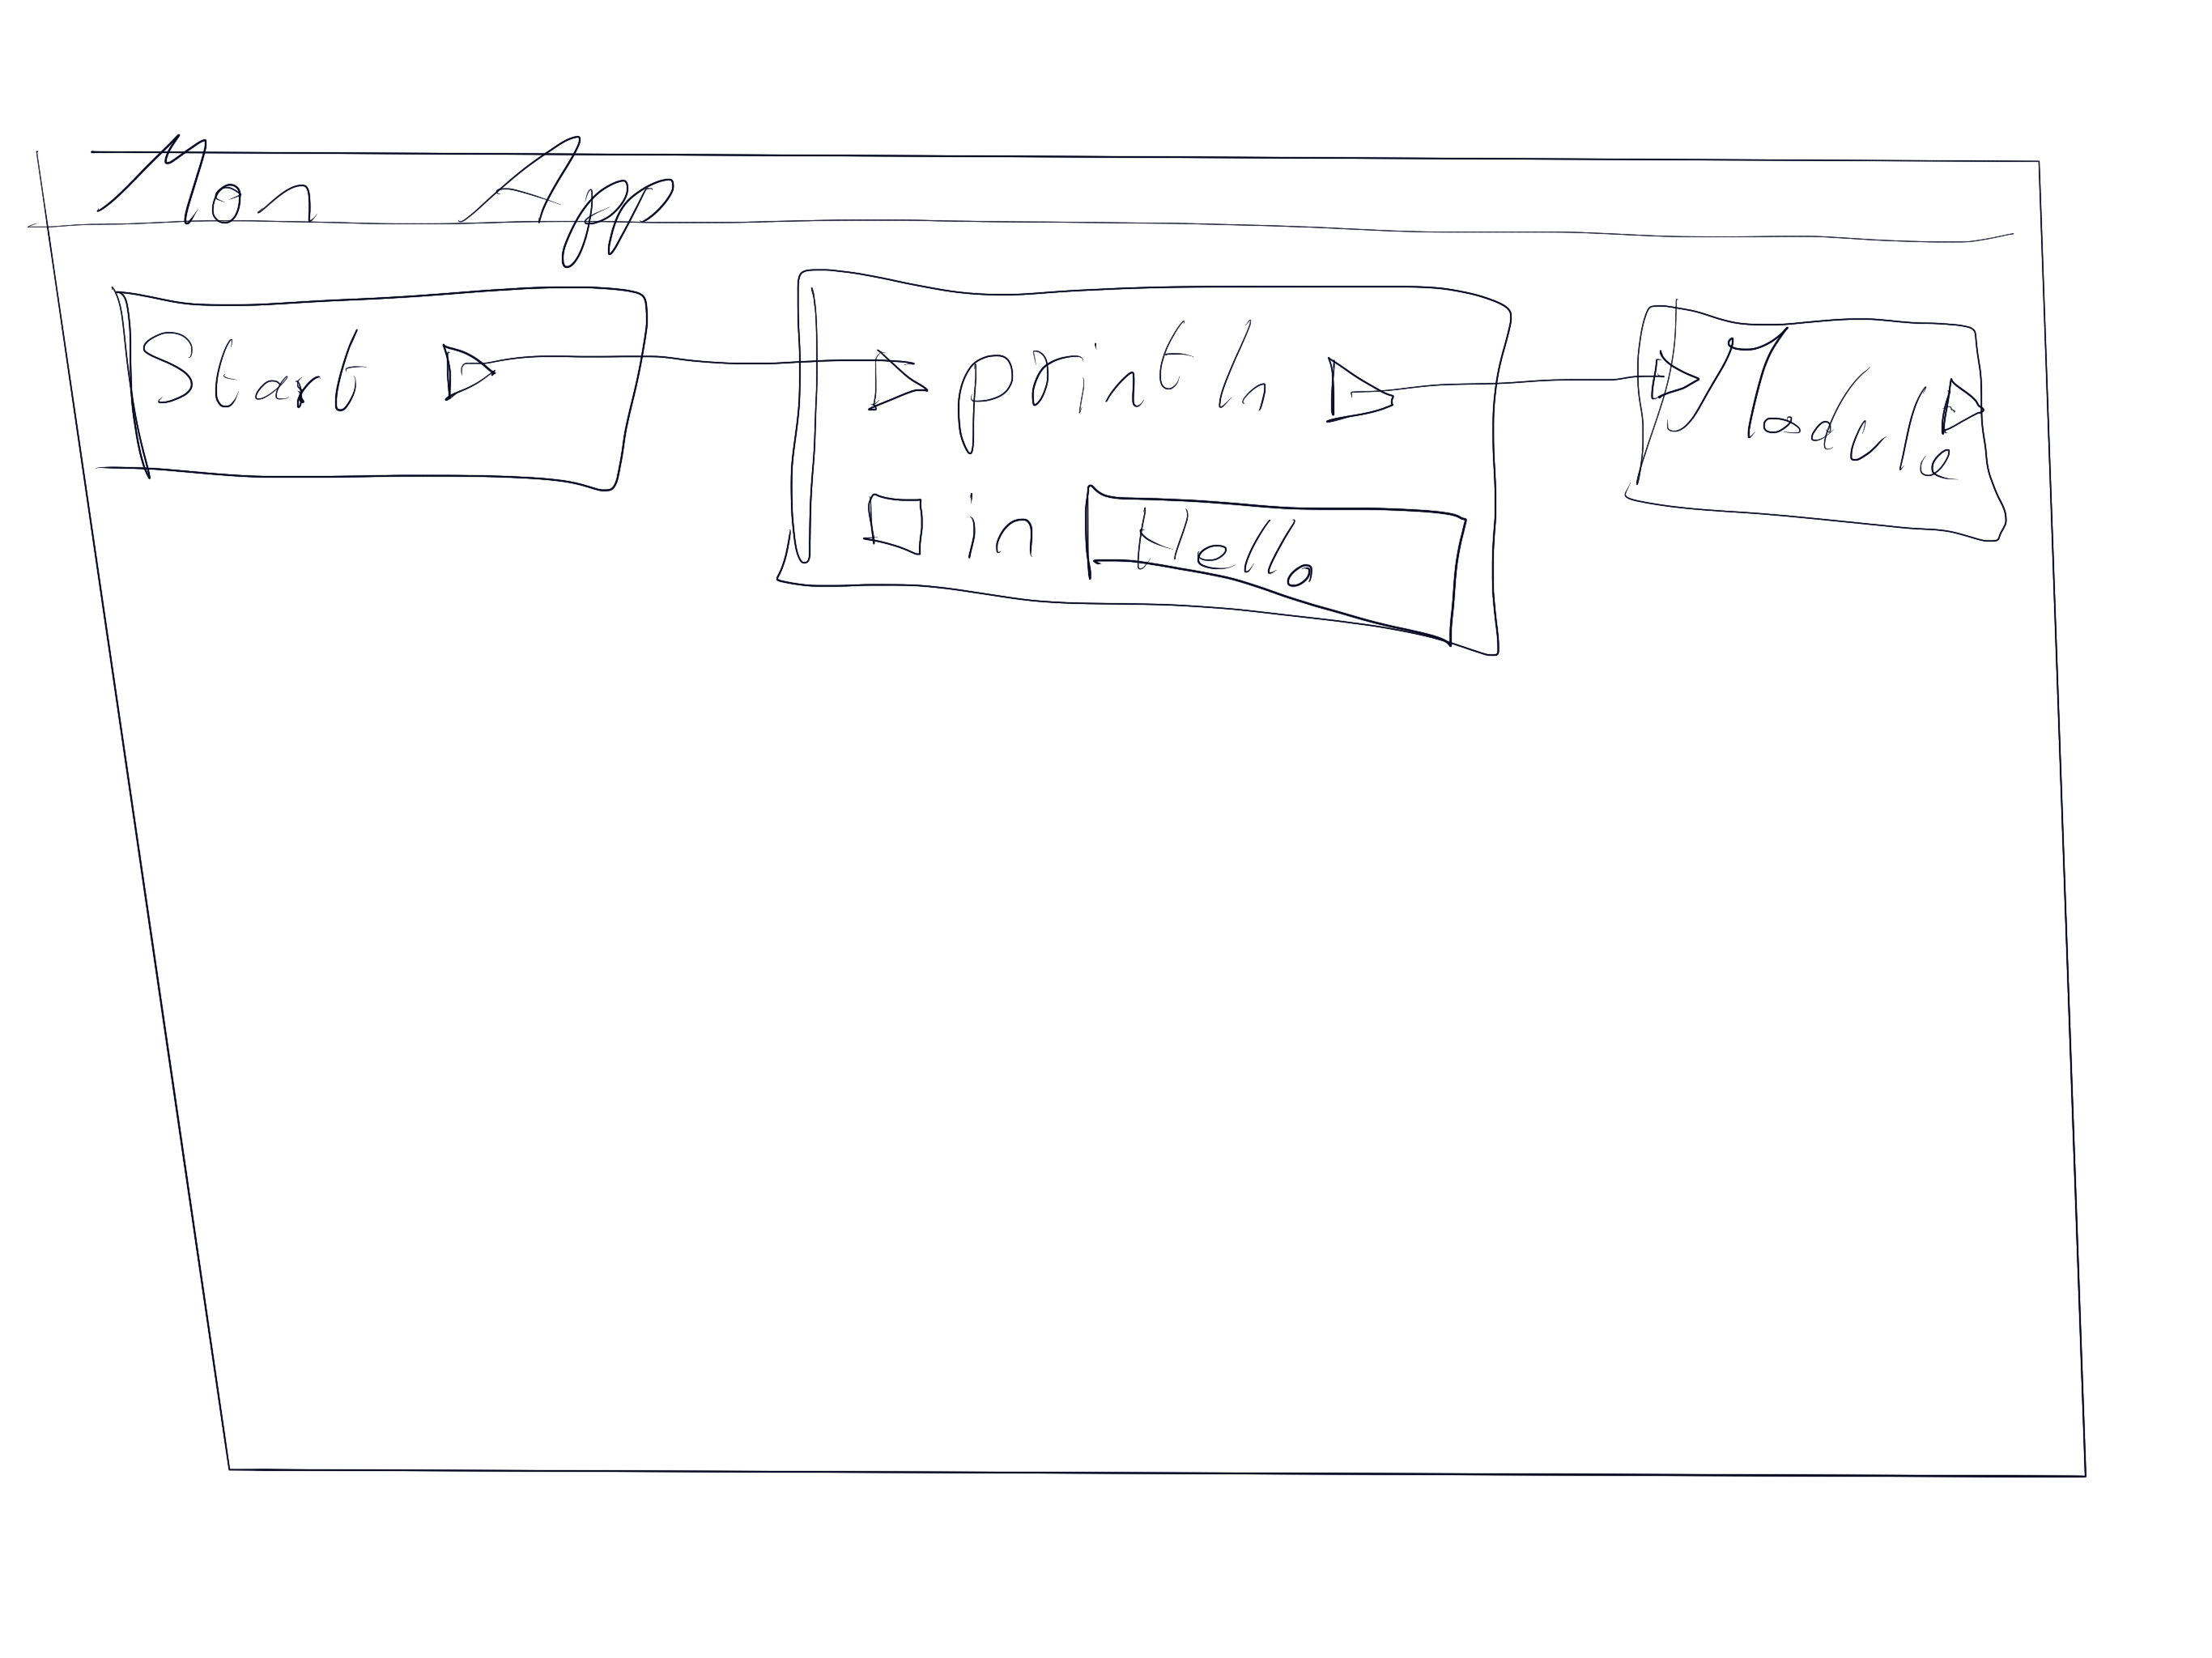 Mon App
Start
println
in Hello
Module